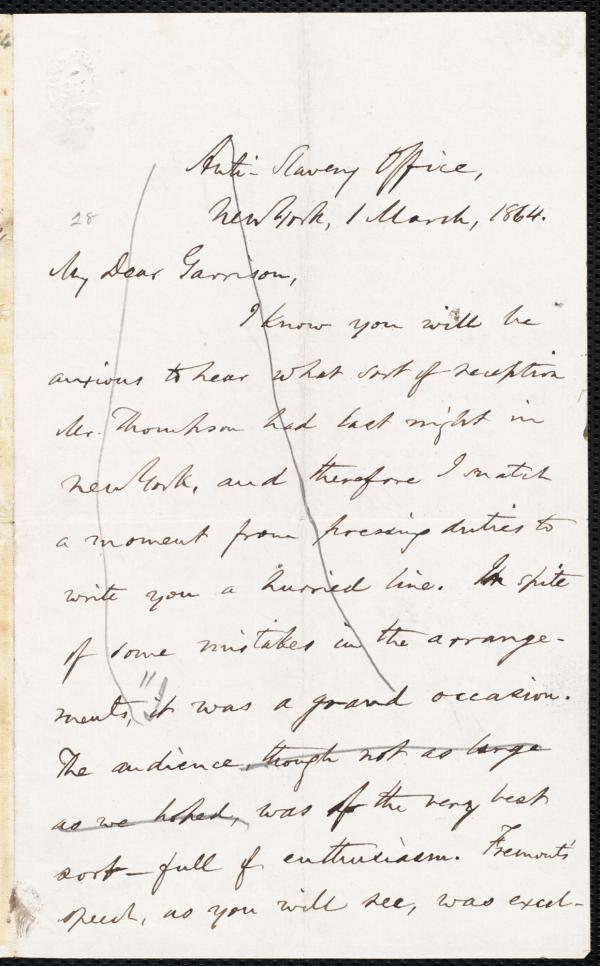 Anti-Slavery Office,
New York, 1 March, 1864.
28
My Dear Garrison,
I know you will be
anxious to hear what sort of reception
Mr. Thompson had last night in
New York, and therefore I snatch
a moment from pressing duties to
write you a hurried line. In spite
of some mistakes in the arrange-
ments, it was a grand occasion.
The audience, though not as large
as we hoped, was of the very best
sort—full of enthusiasm. Fremont's
speech, as you will see, was excel-